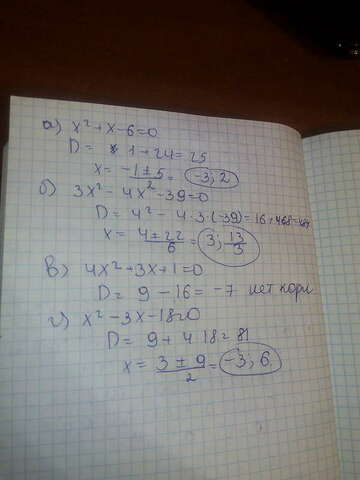 а) x² + x - 6 = 0
D = 1 + 24 = 25
x = -1 ± 5 = -3; 2
б) 3x² - 4x² - 39 = 0
D = 4² - 4 · 3 · (-39) = 16 + 468 = 484
x = 4 ± 22 / 6 = 3; 13/3
в) 4x² + 3x + 1 = 0
D = 9 - 16 = -7 нет корн
г) x² - 3x - 18 = 0
D = 9 + 4 · 18 = 81
x = 3 ± 9 / 2 = -3; 6